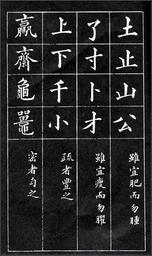 土止山公 雖宜肥而勿腫
了寸卜才 雖宜瘦而勿臞
上下千小 疏者豐之
齊龜鼉 密者勻之